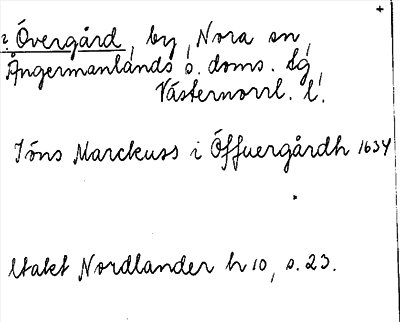 +
? Övergård, by, Nora sn,
Ångermanlands s. doms. lg,
Västernorrl. l.
Jöns Marckuss i Öffuergårdh 1634
Utakt Nordlander h 10, s. 23.